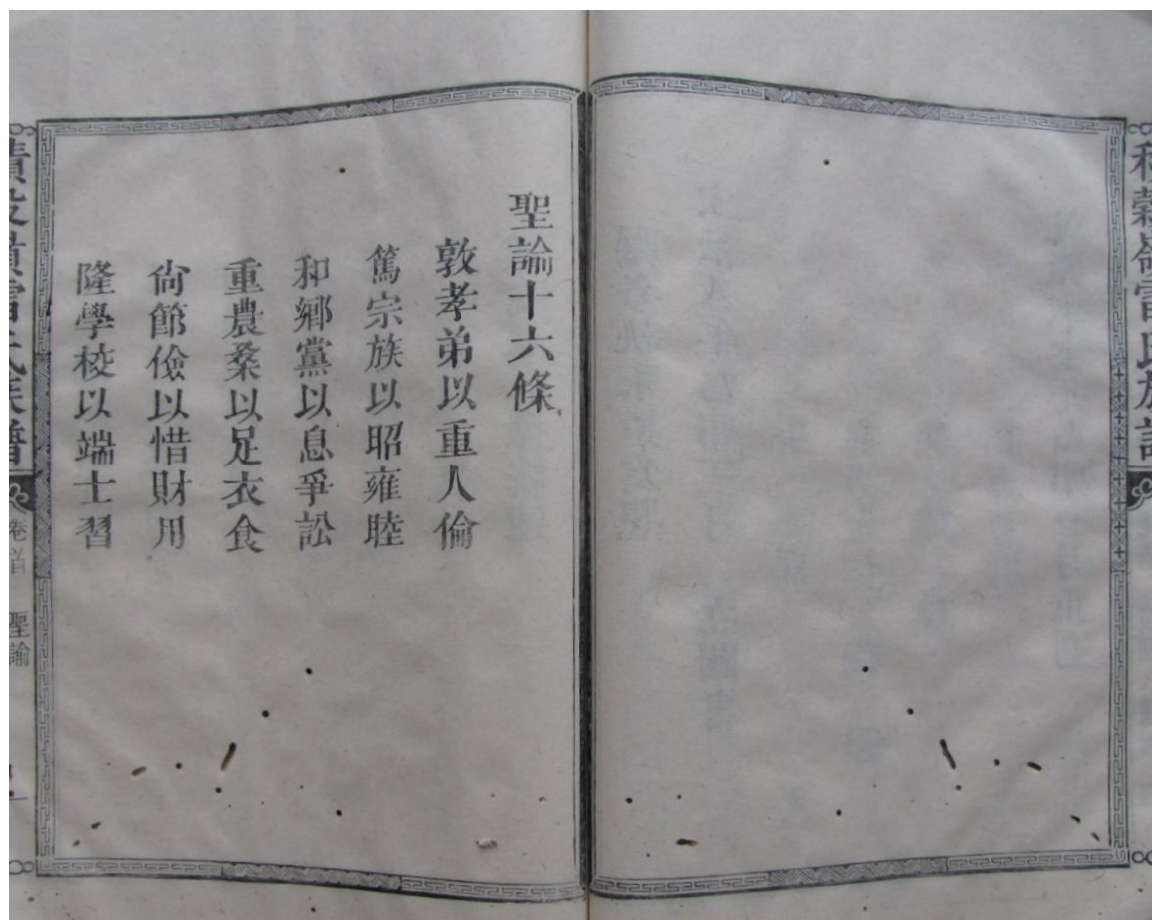 積穀嶺雷氏族譜
聖諭十六條
敦孝弟以重人倫
篤宗族以昭雍睦
和鄉黨以息爭訟
重農桑以足衣食
尙節儉以惜財用
隆學校以端士習
積穀嶺雷氏族譜 卷首 聖諭